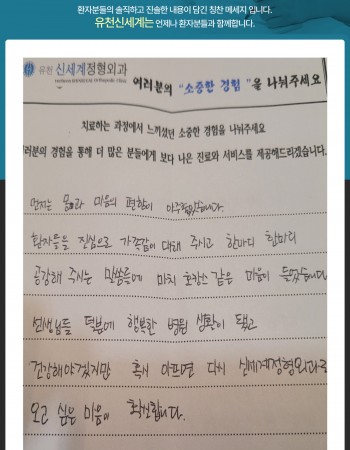 환자분들의 솔직하고 진솔한 내용이 담긴 칭찬 메세지 입니다.
유천신세계는 언제나 환자분들과 함께합니다.
유천 신세계정형외과
여러분의 "소중한 경험"을 나눠주세요
치료하는 과정에서 느끼셨던 소중한 경험을 나눠주세요
러분의 경험을 통해 더 많은 분들에게 보다 나은 진료와 서비스를 제공해드리겠습니다.
먼저는 몸과 마음의 편함이
환자들을 진심으로 가족같이 대해 주시고 한마디 한마디
공감해 주시는 말씀들에 마치 호캉스 같은 마음이 들었습니다
선생님들 덕분에 행복한 병원 생활이 됐고
건강해야겠지만 혹시 아프면 다시 신세계정형외과로
오고 싶은 마음이 확실합니다.